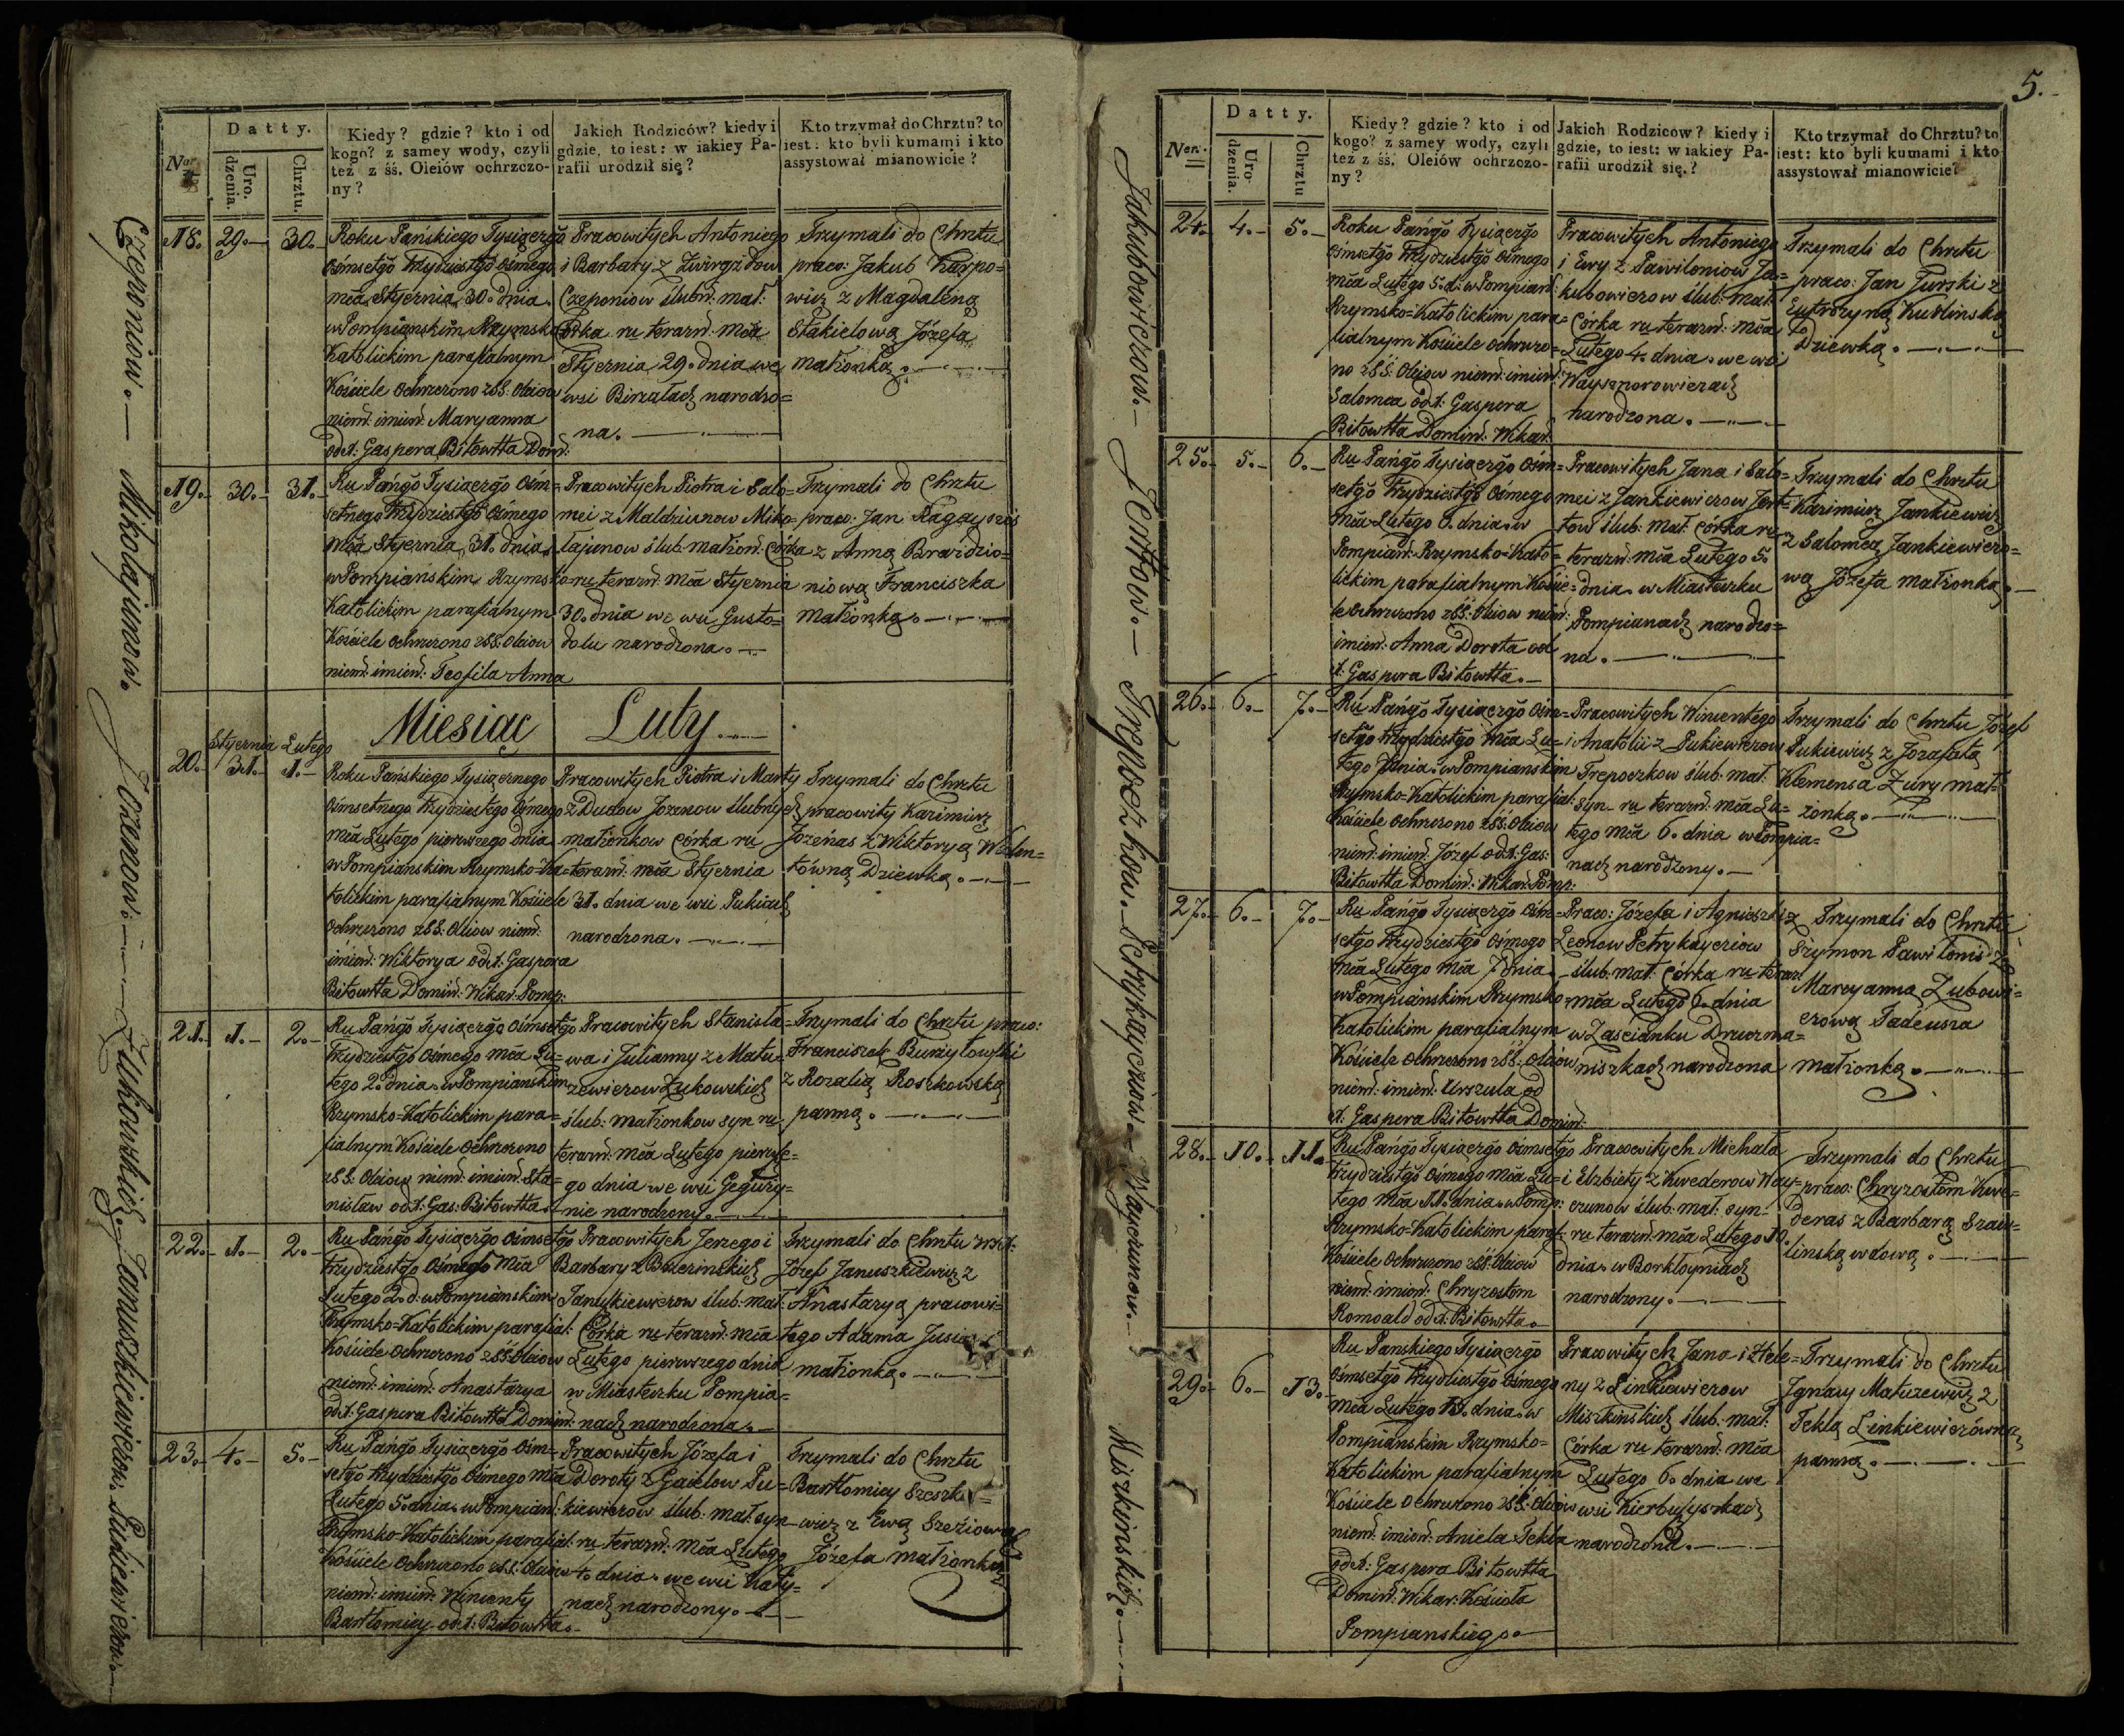 Nor
Datty.
Uro-
dzenia.
Chrztu.
Kiedy? gdzie? kto i od
kogo? z samey wody, czyli
też z śś. Oleiów ochrzczo-
ny?
Jakich Rodziców? kiedy i
gdzie, to iest: w iakiey Pa-
rafii urodził się?
Kto trzymał do Chrztu? to
iest: kto byli kumami i kto
assystował mianowicie?
Czeponiow. — Mikołajunow. Jozenow. — Żukowskich. Januszkiewiczow. Pukiewiczow. —
18. 29. — 30. —
Roku Pańskiego Tysiącgo
Ośmsetgo Trzydziestgo Ośmego
mca Stycznia 30. dnia.
w Pompianskim Rzymsko
Katolickim parafialnym
Kościele Ochrzczono z SS. Oleiow
niemd: imiend: Maryanna
od X. Gaspera Bitowtta Domd:
Pracowitych Antoniego
i Barbary z Zwirgzdow
Czeponiow ślubd: mał:
Córka ru terazń: mca
Stycznia 29. dnia we
wsi Birżalach narodzo=
na. —
Trzymali do Chrztu
praco: Jakub Karpo=
wicz z Magdaleną
Stakielową Józefa
małżonką. —
19. 30. — 31. —
Ru Pańgo Tysiącgo Ośm=
setnego Trzydziestgo Ośmego
mca Stycznia 31. dnia
w Pompiańskim Rzymsko
Katolickim parafialnym
Kościele Ochrzczono z SS. Oleiow
niemd: imiend: Teofila Anna
Pracowitych Piotra i Salo=
mei z Maldziunow Miko=
łajunow ślub: małżon: Córka
ru terazń: mca Stycznia
30. dnia we wsi Gusto=
dolu narodzona. —
Trzymali do Chrztu
praco: Jan Ragayszis
z Anną Brazdzio=
niową Franciszka
małżonką. —
Miesiąc Luty. —
Stycznia Lutego
20. 31. — 1. —
Roku Pańskiego Tysiącznego
Ośmsetnego Trzydziestego Ośmego
mca Lutego pierwszego dnia
w Pompianskim Rzymsko-Ka=
tolickim parafialnym Kościele
Ochrzczono z SS. Oleiow niemd:
imiend: Wiktorya od X. Gaspera
Bitowtta Domind: Wikar: Pomp:
Pracowitych Piotra i Marty
z Dudow Jozenow ślubnych
małżonkow Córka ru
terazń: mca Stycznia
31. dnia we wsi Pukiach
narodzona. —
Trzymali do Chrztu
pracowity Kazimierz
Jozeńas z Wiktoryą Walen=
tówną Dziewką. —
21. 1. — 2. —
Ru Pańgo Tysiącgo Ośmsetgo
Trzydziestgo Ośmego mca Lu=
tego 2. dnia w Pompianskim
Rzymsko=Katolickim para=
fialnym Kościele Ochrzczono
z SS. Oleiow niemd: imiend: Sta=
nisław od X. Gas: Bitowtta.
Pracowitych Stanisła=
wa i Julianny z Matu=
zewiczow Żukowskich
ślub: małżonkow syn ru
terazń: mca Lutego pierwsze=
go dnia we wsi Geguży=
nie narodzony. —
Trzymali do Chrztu praco:
Franciszek
z Rozalią Roszkowską
panną. —
22. 1. — 2. —
Ru Pańgo Tysiącgo Ośmsetgo
Trzydziestgo Ośmego mca
Lutego 2. d. w Pompianskim
Rzymsko-Katolickim parafial:
Kościele Ochrzczono z SS. Oleiow
niemd: imiend: Anastazya
od X. Gaspera Bitowtta Domind:
Pracowitych Jerzego i
Barbary z
Januszkiewiczow ślub: mał:
Córka ru terazń: mca
Lutego pierwszego dnia
w Miasteczku Pompia=
nach narodzona. —
Trzymali do Chrztu
Józef Januszkiewicz z
Anastazyą pracowi=
tego Adama
małżonką. —
23. 4. — 5. —
Ru Pańgo Tysiącgo Ośm=
setgo Trzydziestgo Ośmego mca
Lutego 5. dnia w Pompiand:
Rzymsko-Katolickim parafial:
Kościele Ochrzczono z SS. Oleiow
niemd: imiend: Wincenty
Bartłomiej od X: Bitowtta. —
Pracowitych Józefa i
Doroty z Gaielow Pu=
kiewiczow ślub: mał: syn
ru terazń: mca Lutego
4. dnia we wsi Katy=
nach narodzony. —
Trzymali do Chrztu
Bartłomiey
wicz z Ewą
Józefa małżonką
5.
Ner.
Datty.
Uro-
dzenia.
Chrztu
Kiedy? gdzie? kto i od
kogo? z samey wody, czyli
też z śś. Oleiów ochrzczo-
ny?
Jakich Rodziców? kiedy i
gdzie, to iest: w iakiey Pa-
rafii urodził się?
Kto trzymał do Chrztu? to
iest: kto byli kumami i kto
assystował mianowicie?
Jakubowiczow. — Jottow. — Trepoczkow. — Petrykayciow. — Wayciunow. — Miszkinskich. —
24. 4. — 5. —
Roku Pańgo Tysiącgo
Ośmsetgo Trzydziestgo Ośmego
mca Lutego 5. d. w Pompiand:
Rzymsko=Katolickim para=
fialnym Kościele Ochrzczo=
no z SS. Oleiow niemd: imiend:
Salomea od X. Gaspera
Bitowtta Domind: Wikar:
Pracowitych Antoniego
i Ewy z Pawiloniow Ja=
kubowiczow ślub: mał:
Córka ru terazń: mca
Lutego 4. dnia we wsi
Waysznorowiczach
narodzona. —
Trzymali do Chrztu
praco: Jan Jurski z
Eufrozyną Kublinską
Dziewką. —
25. 5. — 6. —
Ru Pańgo Tysiącgo Ośm=
setgo Trzydziestgo Ośmego
mca Lutego 6. dnia w
Pompiand: Rzymsko-Kato=
lickim parafialnym Koście=
le Ochrzczono z SS. Oleiow niemd:
imiend: Anna Dorota od
X. Gaspera Bitowtta. —
Pracowitych Jana i Salo=
mei z Jankiewiczow Jot=
tow ślub: mał: Córka ru
terazń: mca Lutego 5.
dnia w Miasteczku
Pompianach narodzo=
na. —
Trzymali do Chrztu
Kazimierz Jankiewicz
z Salomeą Jankiewiczo=
wą Józefa małżonką. —
26. 6. — 7. —
Ru Pańgo Tysiącgo Ośm=
setgo Trzydziestgo mca Lu=
tego 7 dnia w Pompianskim
Rzymsko-Katolickim parafial:
Kościele Ochrzczono z SS. Oleiow
niemd: imiend: Józef od X. Gas:
Bitowtta Domind: Wikar: Pomp:
Pracowitych Wincentego
i Anatolii z Pukiewiczow
Trepoczkow ślub: mał:
syn ru terazń: mca Lu=
tego mca 6. dnia w Pompia=
nach narodzony. —
Trzymali do Chrztu Józef
Pukiewicz z Jozafatą
Klemensa Żury mał=
żonką. —
27. 6. — 7. —
Ru Pańgo Tysiącgo Ośm=
setgo Trzydziestgo Ośmego
mca Lutego mca 7 dnia
w Pompianskim Rzymsko
Katolickim parafialnym
Kościele Ochrzczono z SS. Oleiow
niemd: imiend: Urszula od
X. Gaspera Bitowtta Domind:
Praco: Józefa i Agnieszki z
Leonow Petrykayciow
ślub: mał: Córka ru terazń:
mca Lutego 6 dnia
w Zaścianku Druczma=
niszkach narodzona
Trzymali do Chrztu
Szymon Pawilonis z
Maryanną Zubowi=
czową Tadeusza
małżonką. —
28. 10. — 11.
Ru Pańgo Tysiącgo Ośmsetgo
Trzydziestgo Ośmego mca Lu=
tego mca 11. dnia w Pomp:
Rzymsko-Katolickim paraf:
Kościele Ochrzczono z SS. Oleiow
niemd: imiend: Chryzostom
Romoald od X: Bitowtta. —
Pracowitych Michała
i Elzbiety z Kwederow Way=
czunow ślub: mał: syn
ru terazń: mca Lutego 10.
dnia w Borkłoyniach
narodzony. —
Trzymali do Chrztu
praco: Chryzostom Kwe=
deras z Barbarą Szaw=
linską wdową. —
29. 6. — 13.
Ru Panskiego Tysiącgo
Ośmsetgo Trzydziestgo Ośmego
mca Lutego 13. dnia w
Pompianskim Rzymsko=
Katolickim parafialnym
Kościele Ochrzczono z SS. Oleiow
niemd: imiend: Aniela Tekla
od X: Gaspera Bitowtta
Domind: Wikar: Kościoła
Pompianskiego. —
Pracowitych Jana i Hele=
ny z Linkiewiczow
Miszkinskich ślub: mał:
Córka ru terazń: mca
Lutego 6. dnia we
wsi Kierbużyszkach
narodzona. —
Trzymali do Chrztu
Ignacy Matuzewicz z
Teklą Linkiewiczówną
panną. —